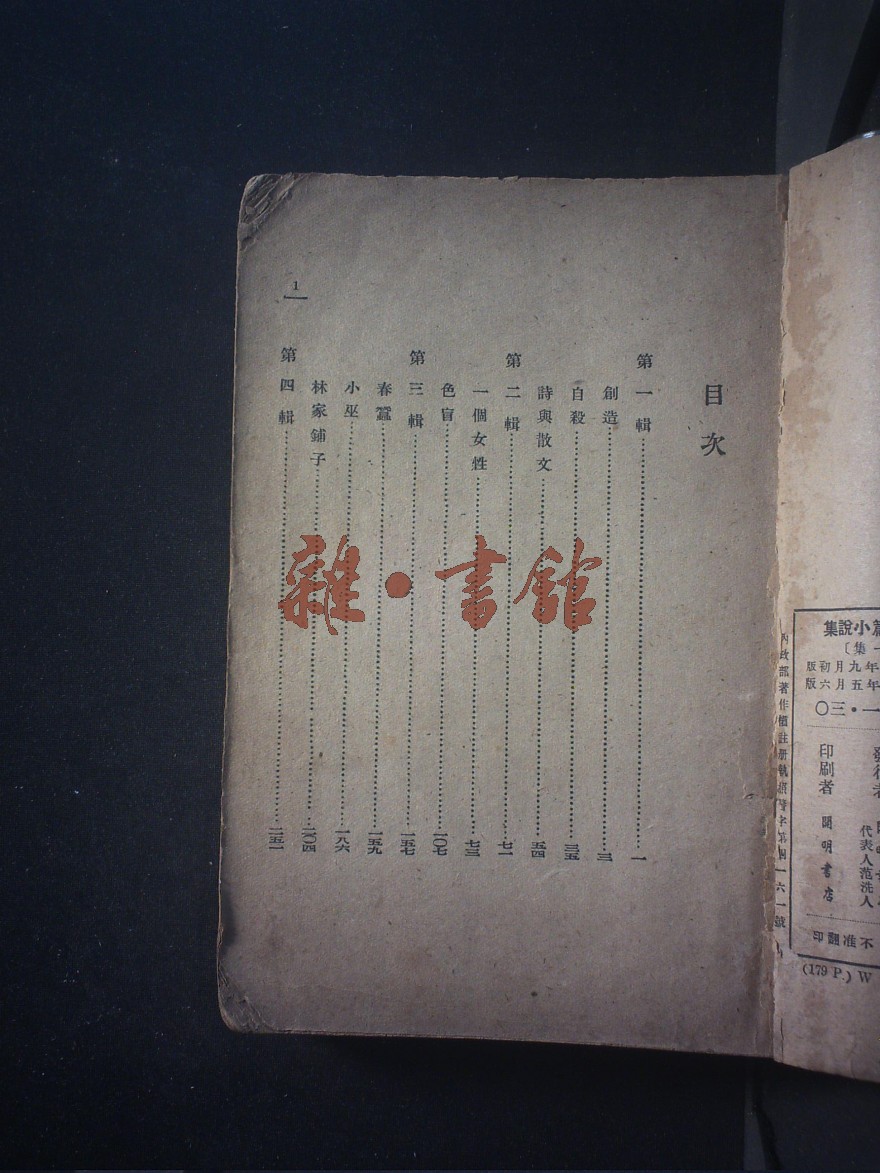 目次
第一輯……一
創造……三
自殺……三五
詩與散文……五四
第二輯……七一
一個女性……七三
色盲……一〇七
第三輯……一五七
春蠶……一五九
小巫……一八六
林家鋪子……二〇四
第四輯……二五一
1
雜·書館
篇小說集
〔一集
年九月初版
年五月六版
一·三〇
發行者
代表人范洗人
印刷者 開明書店
不准翻印
(179 P.) W
內政部著作權註冊執照警字第 一六一號